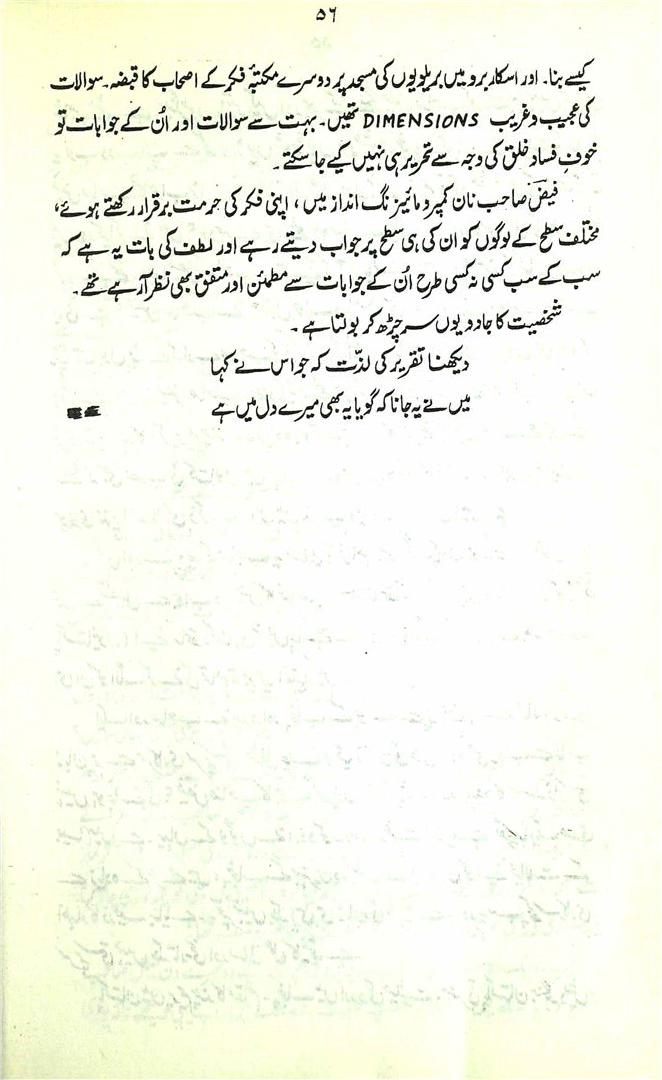 ۵۶
کیسے بنا۔ اور اسکاربرو میں بریلویوں کی مسجد پر دوسرے مکتبۂ فکر کے اصحاب کا قبضہ۔ سوالات
کی عجیب و غریب DIMENSIONS تھیں۔ بہت سے سوالات اور اُن کے جوابات تو
خوفِ فساد خلق کی وجہ سے تحریر ہی نہیں کیے جا سکتے۔
فیض صاحب نان کمپرومائیزنگ انداز میں، اپنی فکر کی حرمت برقرار رکھتے ہوئے،
مختلف سطح کے لوگوں کو ان کی ہی سطح پر جواب دیتے رہے اور لطف کی بات یہ ہے کہ
سب کے سب کسی نہ کسی طرح اُن کے جوابات سے مطمئن اور متفق بھی نظر آ رہے تھے۔
شخصیت کا جادو یوں سر چڑھ کر بولتا ہے۔
دیکھنا تقریر کی لذّت کہ جو اس نے کہا
میں نے یہ جانا کہ گویا یہ بھی میرے دل میں ہے